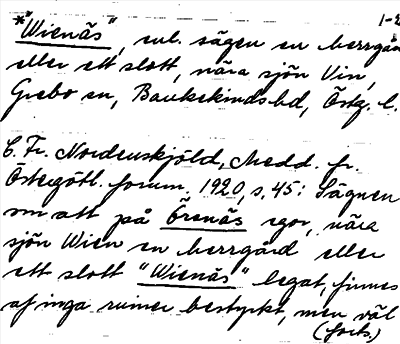 *"Wienäs", enl. sägen en herrgård
eller ett slott, nära sjön Vin,
Grebo sn, Bankekinds hd, Östg. l.
C. Fr. Nordenskjöld, Medd. fr.
Östergötl. fornm. 1920, s. 45: Sägnen
om att på Örenäs egor, nära
sjön Wien en herrgård eller
ett slott "Wienäs" legat, finnes
af inga ruiner bestyrkt, men väl
(forts.)